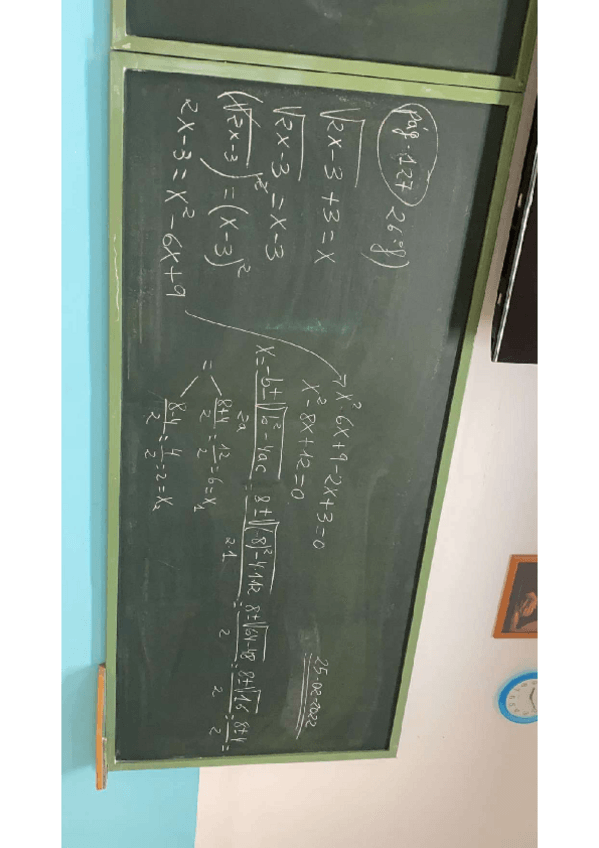 Pág. 127 26:f)
√2x-3 +3=x
√2x-3 = x-3
(√2x-3)² = (x-3)²
2x-3 = x² - 6x+9
25-02-2022
x²-6x+9-2x+3=0
x²-8x+12=0
x = -b±√b²-4ac / 2a = 8±√(-8)²-4·1·12 / 2·1 = 8±√64-48 / 2 = 8±√16 / 2 = 8±4 / 2 =
= 8+4 / 2 = 12 / 2 = 6 = x₁
8-4 / 2 = 4 / 2 = 2 = x₂